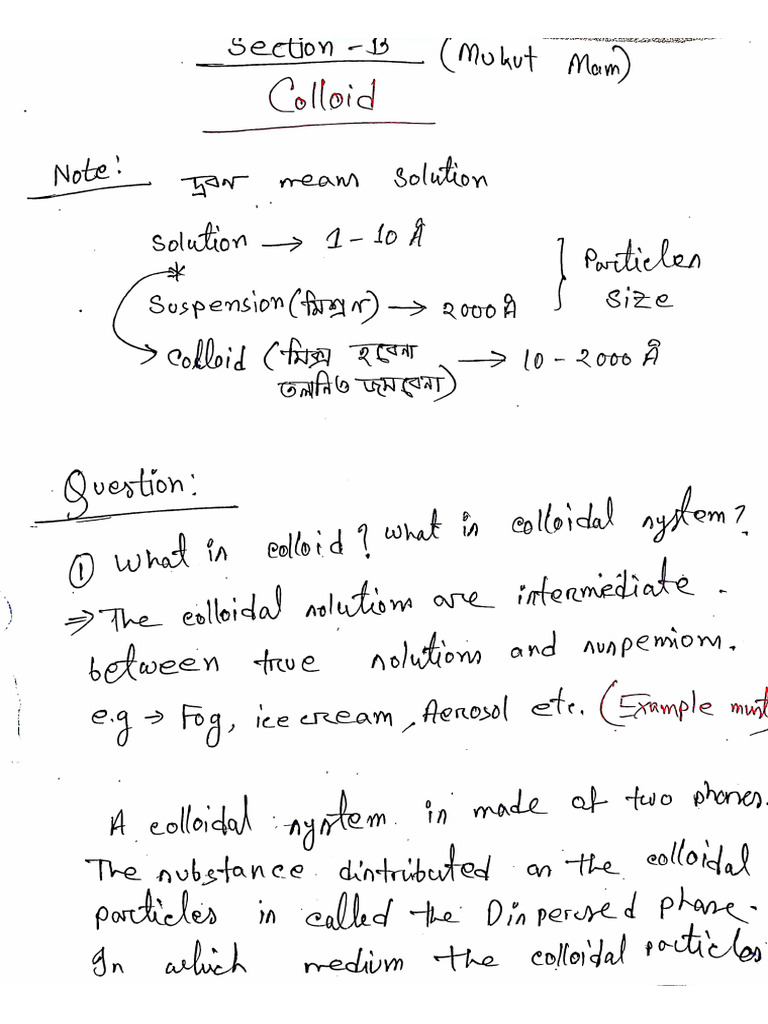 Section - B (Mukut Mam)
Colloid
Note: দ্রবন means solution
Solution → 1 - 10 Å
Suspension (মিশ্রন) → 2000 Å
Colloid (মিক্স হবেনা → 10 - 2000 Å
তলানিও জমবেনা)
} Particles
size
Question:
① What is colloid? What is colloidal system?
⇒ The colloidal solutions are intermediate
between true solutions and suspensions.
e.g → Fog, ice cream, Aerosol etc. (Example must
A colloidal system is made of two phases.
The substance distributed as the colloidal
particles is called the Dispersed phase.
In which medium the colloidal particles